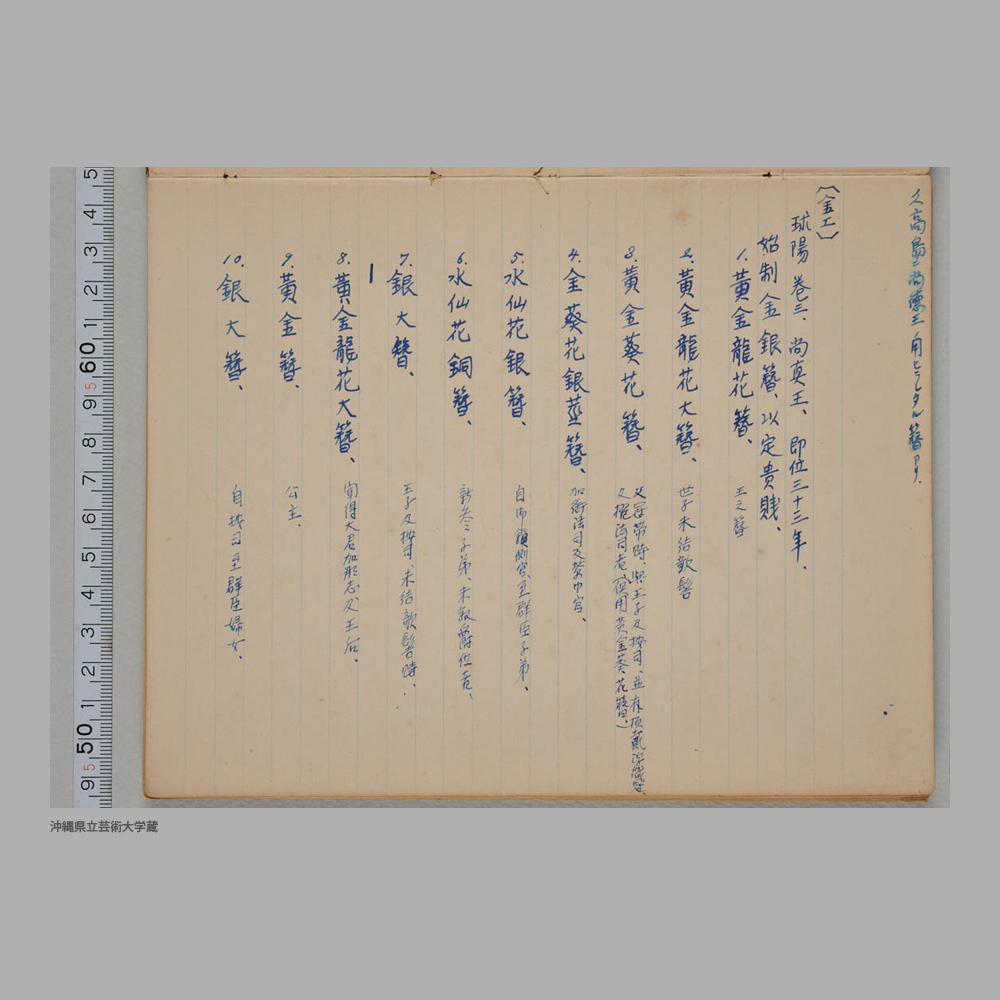 久高島ニ尚徳王ノ用ヒラレタル簪アリ.
〔金工〕
球陽 巻三、尚真王、即位三十三年、
始制金銀簪、以定貴賤、
1. 黄金龍花簪、 王之簪
2. 黄金龍花大簪、 世子未結欹髻
3. 黄金葵花簪、 及冠帶時、與王子及按司、並有頂戴
又擢法司者、(俱用黄金葵花簪)
4. 金葵花銀莖簪、 加銜法司及紫巾官、
5. 水仙花銀簪、 自御鎖側官、至群臣子弟、
6. 水仙花銅簪、 新参子弟、未叙爵位者、
7. 銀大簪、 王子及按司、未結欹髻時、
8. 黄金龍花大簪、 聞得大君加那志及王后、
9. 黄金簪、 公主、
10. 銀大簪、 自按司至群臣婦女、
5 4 3 2 1 60 9 8 7 6 5 4 3 2 1 50 9
5 5
沖縄県立芸術大学蔵